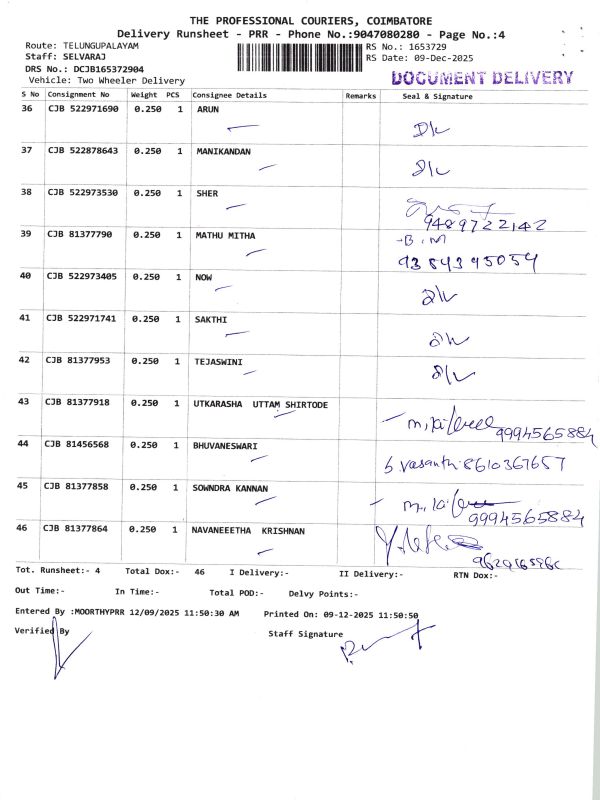 THE PROFESSIONAL COURIERS, COIMBATORE
Delivery Runsheet - PRR - Phone No.:9047080280 - Page No.:4
Route: TELUNGUPALAYAM
RS No.: 1653729
Staff: SELVARAJ
RS Date: 09-Dec-2025
DRS No.: DCJB165372904
Vehicle: Two Wheeler Delivery
DOCUMENT DELIVERY
S No Consignment No Weight PCS Consignee Details Remarks Seal & Signature
36 CJB 522971690 0.250 1 ARUN
37 CJB 522878643 0.250 1 MANIKANDAN
38 CJB 522973530 0.250 1 SHER
9489722142
39 CJB 81377790 0.250 1 MATHU MITHA B.M
9384395054
40 CJB 522973405 0.250 1 NOW
41 CJB 522971741 0.250 1 SAKTHI
42 CJB 81377953 0.250 1 TEJASWINI
43 CJB 81377918 0.250 1 UTKARASHA UTTAM SHIRTODE
9994565884
44 CJB 81456568 0.250 1 BHUVANESWARI
S. Vasanth. 8610367657
45 CJB 81377858 0.250 1 SOWNDRA KANNAN
9994565884
46 CJB 81377864 0.250 1 NAVANEEETHA KRISHNAN
Tot. Runsheet:- 4 Total Dox:- 46 I Delivery:- II Delivery:- RTN Dox:-
Out Time:- In Time:- Total POD:- Delvy Points:-
Entered By :MOORTHYPRR 12/09/2025 11:50:30 AM Printed On: 09-12-2025 11:50:50
Verified By Staff Signature